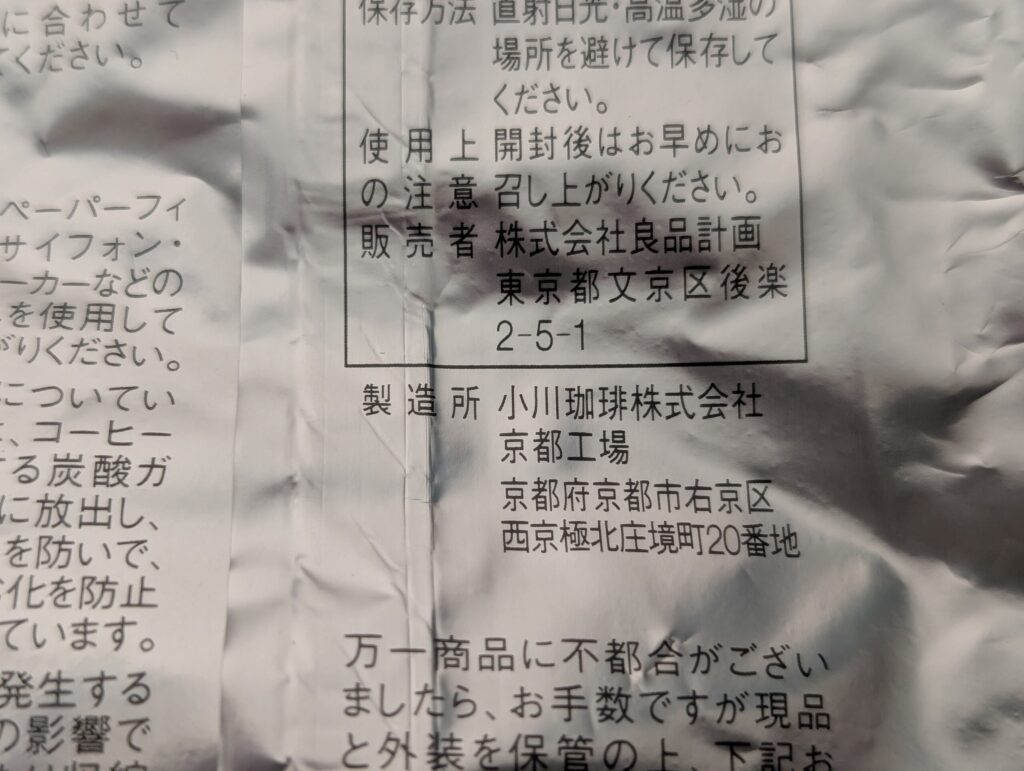 に合わせて
てください。
ペーパーフィ
サイフォン・
ーカーなどの
を使用して
がりください。
についてい
、コーヒー
する炭酸ガ
に放出し、
を防いで、
化を防止
ています。
発生する
の影響で
保存方法 直射日光・高温多湿の
場所を避けて保存して
ください。
使用上 開封後はお早めにお
の注意 召し上がりください。
販売者 株式会社良品計画
東京都文京区後楽
2-5-1
製造所 小川珈琲株式会社
京都工場
京都府京都市右京区
西京極北庄境町20番地
万一商品に不都合がござい
ましたら、お手数ですが現品
と外装を保管の上、下記お